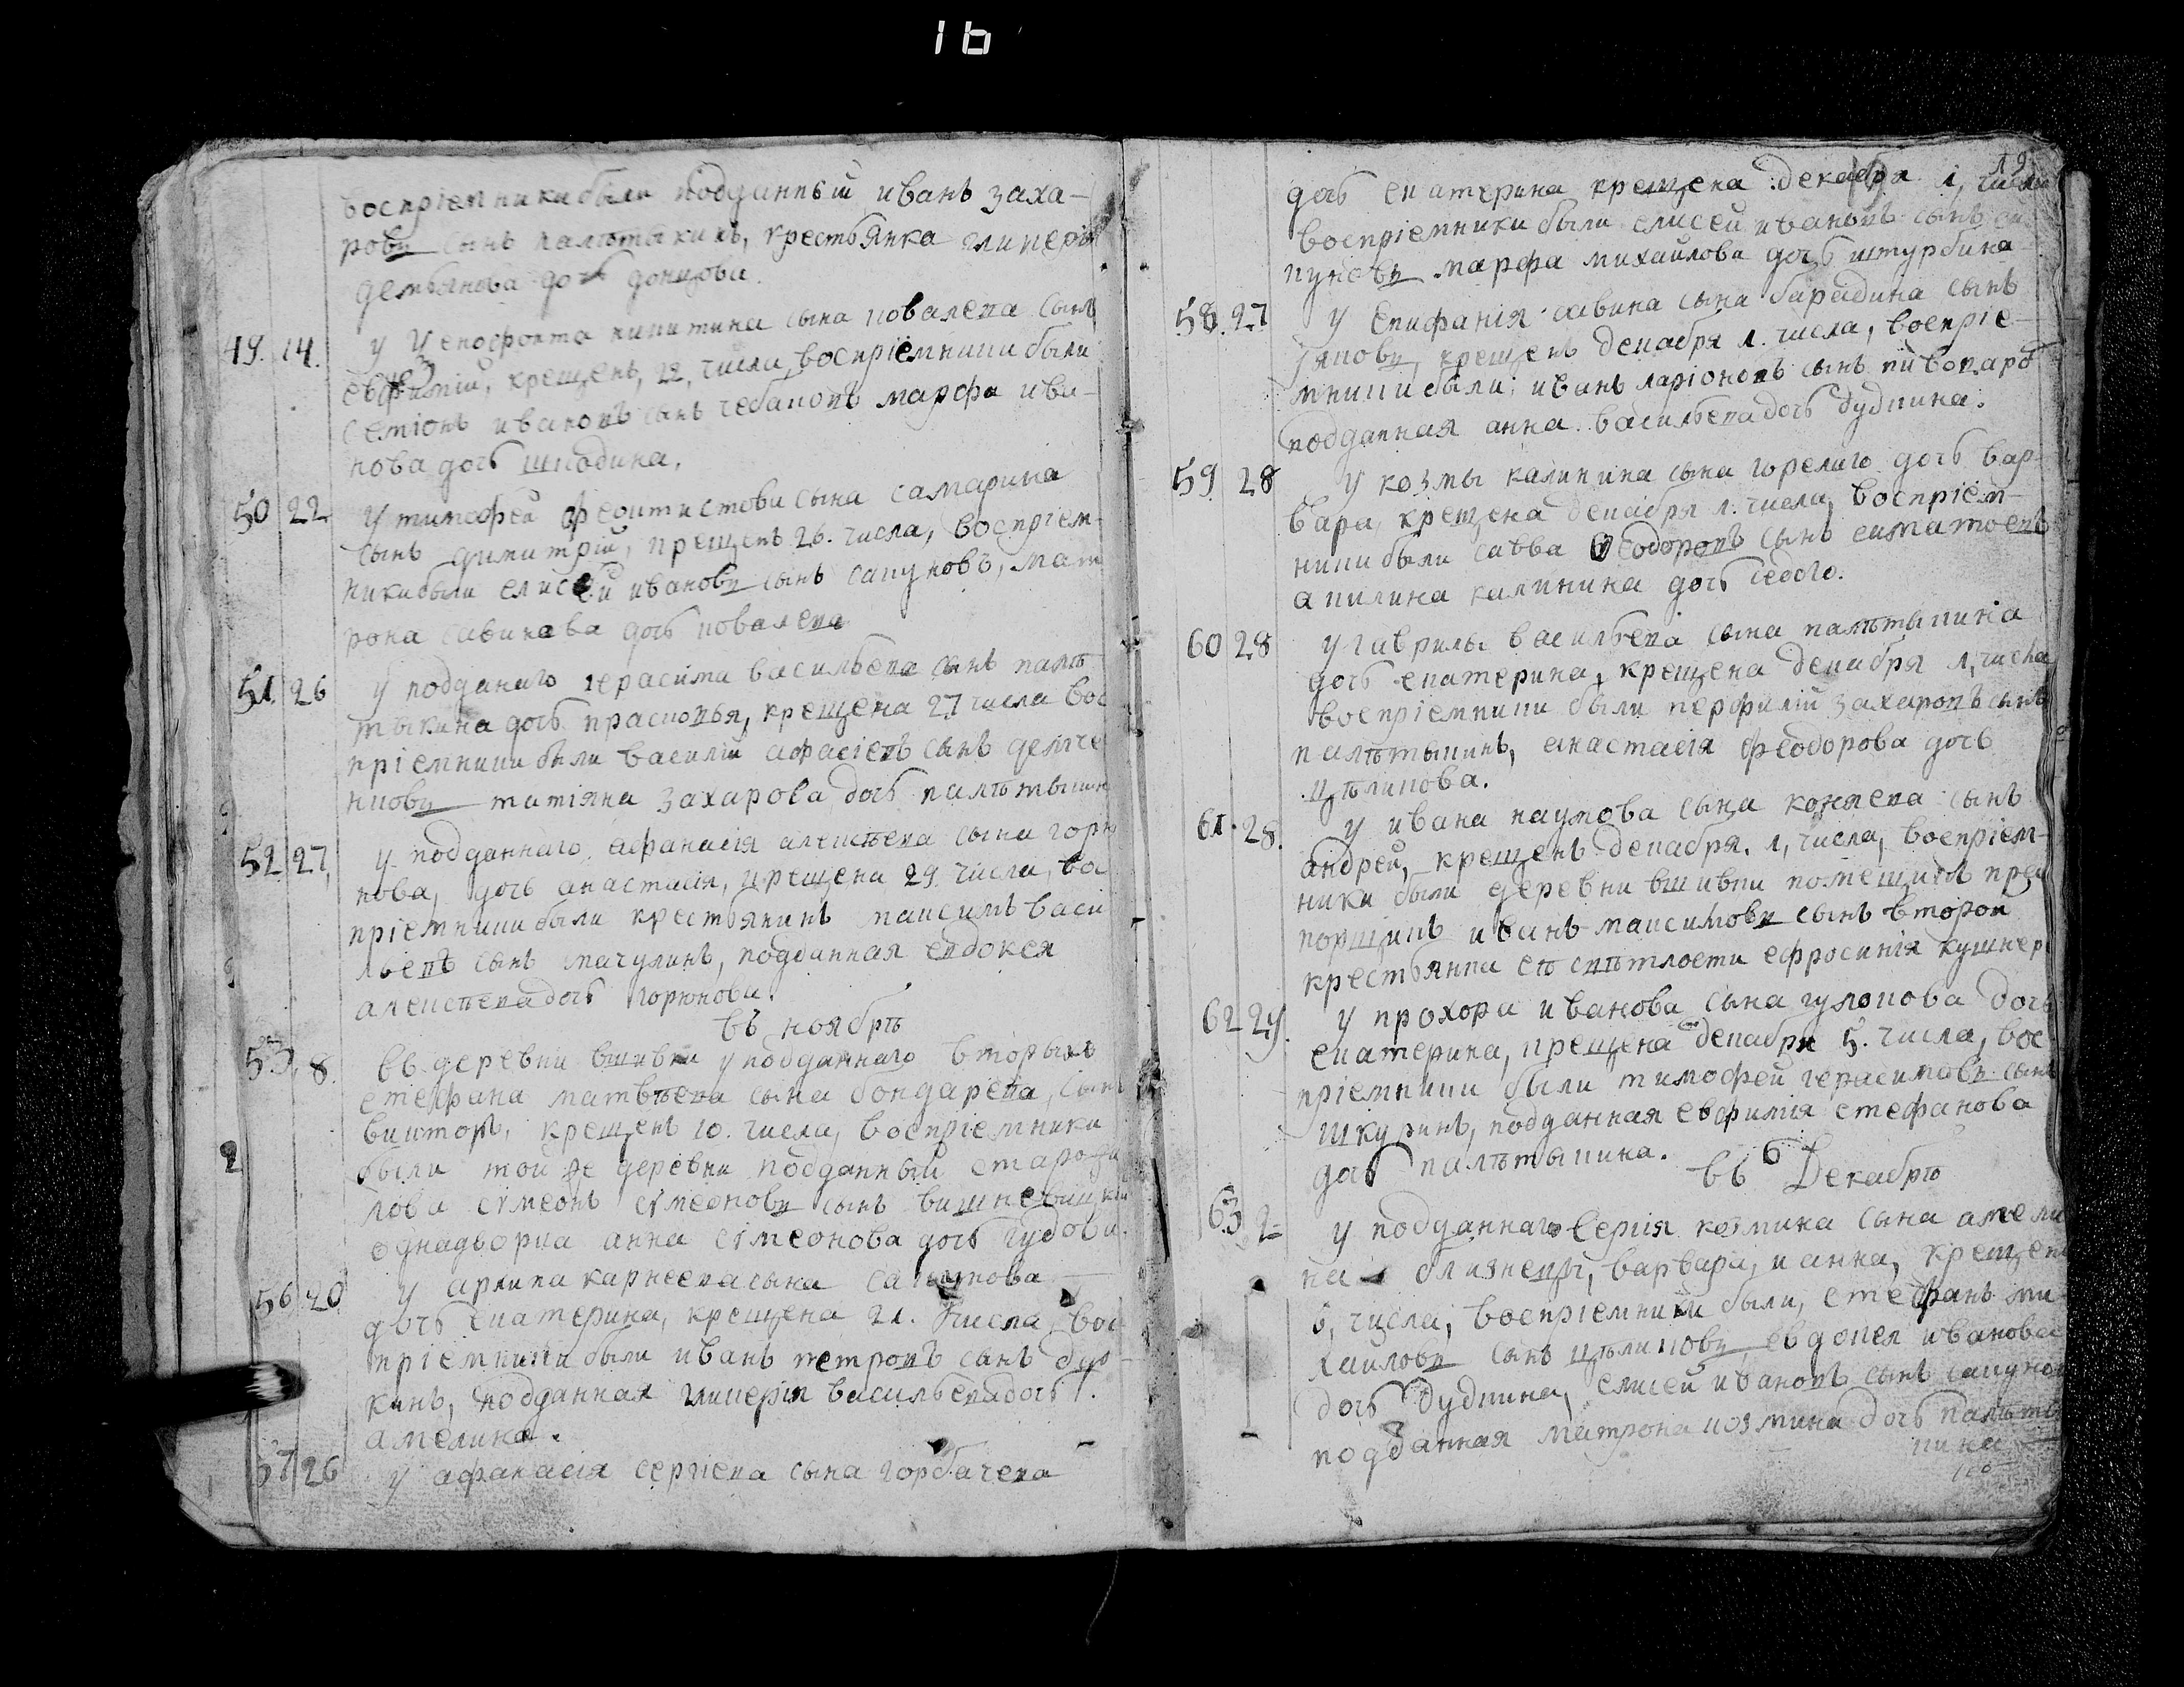 16
воспріемники были подданный иванъ заха-
ровъ сынъ палѣтыкинъ, крестьянка гликерія
демьянова дочь донцова.
49. 14. У Ксенофонта никитина сына ковалева сынъ
евфимій, крещенъ, 22, числа, воспріемники были
семіонъ ивановъ сынъ чебановъ марфа ива-
нова дочь шкодина.
50 22 У тимофея феоктистова сына самарина
сынъ димитрій, крещенъ 26. числа, воспріем-
ники были елисей ивановъ сынъ сапуновъ, мат
рона савинова дочь ковалева
51. 26 У подданаго герасима васильева сынъ палѣ
тыкина дочь прасковья, крещена 27 числа вос
пріемники были василій афасіевъ сынъ демче
нковъ татіяна захарова дочь палѣтыкин
52 27, У подданнаго афанасія алексѣева сына горю
нова, дочь анастасія, крещена 29. числа, вос
пріемники были крестьянинъ максимъ васи
льевъ сынъ мачулинъ, подданная евдокея
алексѣева дочь горюнова.
въ ноябрѣ
53, 8. въ деревни вшивки у подданнаго вторыхъ
стефана матвѣева сына бондарева, сынъ
викторъ, крещенъ 10. числа, воспріемники
были той же деревни подданный старофи
лова сѵмеонъ сѵмеоновъ сынъ вишневицкій
однадворка анна сѵмеонова дочь гудова.
56 20 У архипа карнеева сына сапунова
дочь екатерина, крещена 21. числа, вос
пріемники были иванъ петровъ сынъ дуд-
кинъ, подданная гликерія васильева дочь
амелина.
57 26 У афанасія сергіева сына горбачева
19
дочь екатерина крещена декабря 1, числа
воспріемники были елисей ивановъ сынъ са
пуновъ марфа михайлова дочь штурбина
58. 27 У Епифанія савина сына барадина сынъ
Іяковъ, крещенъ декабря 1. числа, воспріе-
мники были: иванъ ларіоновъ сынъ пивоваръ
подданная анна васильева дочь дудкина.
59 28 У козмы калинина сына горелаго дочь вар-
вара, крещена декабря 1. числа, воспріем-
ники были савва Ѳеодоровъ сынъ
акилина калинина дочь
60 28 У гаврилы васильева сына палѣтыкина
дочь екатерина, крещена декабря 1, числа
воспріемники были перфилій захаровъ сынъ
палѣтыкинъ, анастасія феодорова дочь
цѣликова.
61. 28. У ивана наумова сына коняева сынъ
андрей, крещенъ декабря. 1, числа, воспріем-
ники были деревни вшивки помещикъ прап
порщикъ иванъ максимовъ сынъ второй
крестьянка еѣ свѣтлости ефросинія кушнер
62 29. У прохора иванова сына гулопова дочь
екатерина, крещена декабря 5. числа, вос
пріемники были тимофей герасимовъ сынъ
шкуринъ, подданная евфимія стефанова
дочь палѣтыкина.
въ Декабрѣ
63 2 У подданнаго Сергія козмина сына амели
на близнецы, варвара, и анна, крещены
5, числа, воспріемники были, стефанъ ми-
хайловъ сынъ цѣликовъ, евдокея иванова
дочь Дудкина, елисей ивановъ сынъ сапунов
подданная матрона козмина дочь палѣты
кина